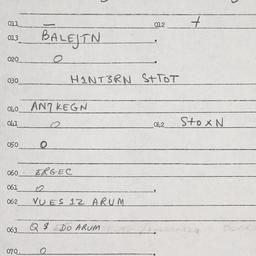 011 — 012 +
013 BALEJTN
020 O
030 H1NT3RN S+TOT
040 AN7KEGN
041 O 042 StoxN
050 O
060 ERGEC
061 O
062 VUES 12 ARUM
063 Q $ EDO ARUM
070 O